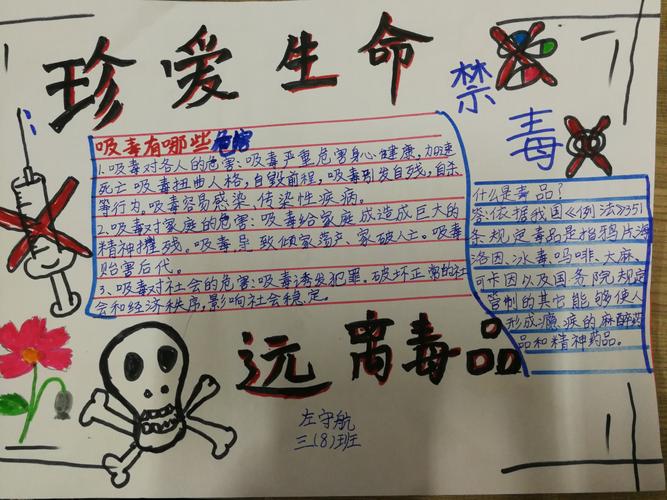 珍爱生命
禁毒
吸毒有哪些危害
1.吸毒对各人的危害:吸毒严重危害身心健康,加速
死亡吸毒扭曲人格,自毁前程,吸毒引发自残,自杀
等行为。吸毒容易感染传染性疾病。
2.吸毒对家庭的危害:吸毒给家庭成造成巨大的
精神摧残。吸毒导致倾家荡产、家破人亡。吸毒
贻害后代。
3、吸毒对社会的危害:吸毒诱发犯罪.破坏正常的社
会和经济秩序,影响社会稳定。
什么是毒品?
答:依据我国《例法》351
条规定毒品是指鸦片海
洛因、冰毒、吗啡、大麻、
可卡因以及国务院规定
管制的其它能够使人
形成瘾的麻醉药
品和精神药品。
远离毒品
左守航
三(8)班